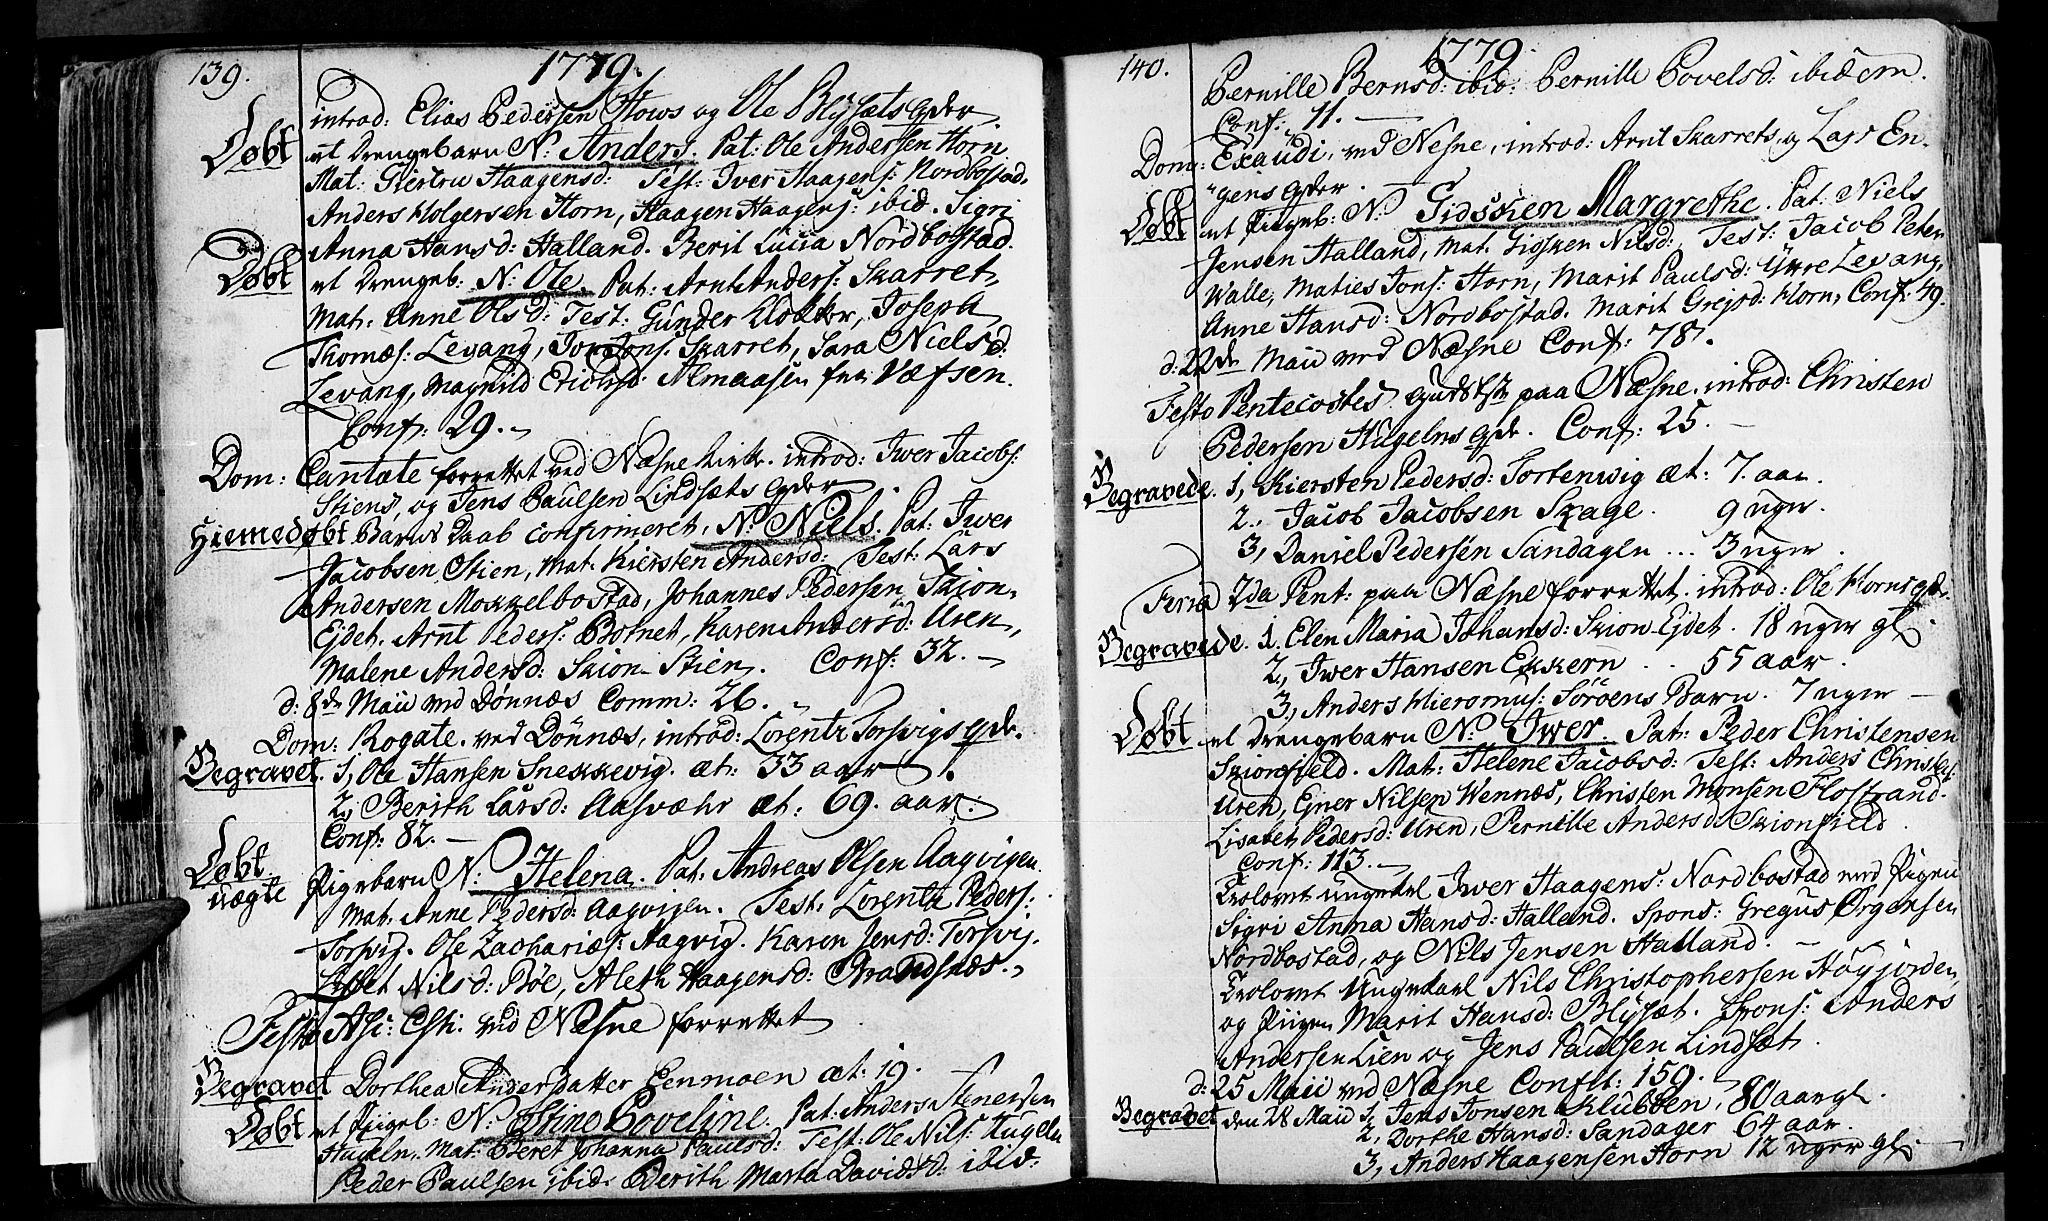 139.
1779.
introd: Elias Pedersen Hows og Ole Blysæts qder
Døbt et Drengebarn N. Anders. Pat: Ole Andersen Horn
Mat: Giertru Haagensd: Test: Iver Haagens: Nordbostad.
Anders Holgersen Horn, Haagen Haagens: ibid. Sigri
Anna Hansd: Halland. Berit Lucia Nordbostad.
Døbt et Drengeb: N: Ole. Pat: Arnt Anders: Skarret,
Mat: Anne Olsd: Test: Gunder Klokker, Joseph
Thomæs: Levang, Jon Jons: Skarret, Sara Nielsd:
Levang, Magnild Erichsd: Almaasen fra Væfsen.
Conf: 29.
Dom: Cantate forrettet ved Næsne Kirke. introd: Iwer Jacobs:
Stiens, og Jens Paulsen Lindsæts qder
Hiemedøbt Barns Daab confirmeret, N. Niels. Pat: Iwer
Jacobsen Stien, Mat. Kiersten Andersd: Test: Lars
Andersen Mokkelbostad, Johannes Pedersen Skion-
Ejdet. Arnt Peders: Botnet, Karen Andersd: Uren,
Malene Andersd: Skion Stien. Conf: 32.
d: 8de Maii ved Dønnæs Comm: 26.
Dom: Rogate. ved Dönnæs, introd: Lorentz Torsvigs qde.
Begravet. 1, Ole Hansen Snekkevig. æt: 33 aar
2, Berith Larsd: Aasvæhr æt: 69. aar.
Conf: 82.
Døbt uægte Pigebarn N. Helena. Pat: Andreas Olsen Aagvigen.
Mat: Anne Pedersd: Aagvigen. Test. Lorentz Peders:
Torsvig. Ole Zachariæs: Aagvig. Karen Jensd: Torsvig.
Nilsd: Bøe, Aleth Haagensd: Brandsnæs.
Festo Asc: Chr: ved Nesne forrettet
Begravet Dorthea Andersdatter Eenmoen æt: 19.
Døbt et Pigeb: N. Stine Poveline. Pat: Anders Stenersen
Hugeln, Mat: Beret Johanna Paulsd: Test: Ole Nils: Hugeln
Peder Paulsen ibid. Ederith Marta Davidsd: ibid:
140.
1779.
Pernille Bernsd: ibid. Pernille Povelsd: ibidem.
Conf: 11.
Dom: Exaudi, ved Nesne, introd: Arnt Skarrets, og Lars En-
gens qder.
Døbt et Pigeb: N: Gidskien Margrethe. Pat: Niels
Jensen Halland, Mat. Gidsken Nilsd: Test: Jacob Peter
Walle, Maties Jons: Horn, Marit Paulsd: Yttre Levang,
Anne Hansd: Nordbostad. Marit Grejsd: Horn. Conf: 49.
d: 22de Maii ved Næsne Conf: 78.
Festo Pentecostes Gudstste paa Næsne. introd: Christen
Pedersen Hugelns qde. Conf: 25.
Begravede. 1, Kiersten Pedersd: Sortenwig æt: 7. aar.
2., Jacob Jacobsen Skage. 9 uger.
3, Daniel Pedersen Sandagen ... 3 uger.
Feria 2da Pent: paa Næsne forrettet. introd: Ole Horns qde.
Begravede. 1. Elen Maria Johansd: Skion Ejdet. 18 uger gl.
2, Iwer Hansen Ekkern .. 55 aar.
3, Anders Hieromus: Söröens Barn. 7 uger
Døbt et Drengebarn N. Iwer. Pat: Peder Christensen
Skionsfield. Mat: Helene Jacobsd: Test: Anders Christens:
Uren, Ejner Nilsen Wennæs, Christen Monsen Flostrand.
Lisabet Pedersd: Uren, Pernille Andersd: Skionsfield.
Conf: 113.
Trolovet Ungekarl Iwer Haagens: Nordbostad med Pigen
Sigri Anna Hansd: Halland. Spons: Gregus Ørgensen
Nordbostad, og Nils Jensen Halland.
Trolovet Ungekarl Nils Christophersen Högjorden,
og Pigen Marit Hansd: Blysæt. Spons: Anders
Andersen Lien og Jens Paulsen Lindsæt.
d: 25 Maii ved Næsne Conflt: 159.
Begravet den 28 Maii 1, Jens Jonsen Klubben, 80 aar gl.
2, Dorthe Hansd: Sandager 64 aar.
3, Anders Haagensen Horn 12 uger gl.